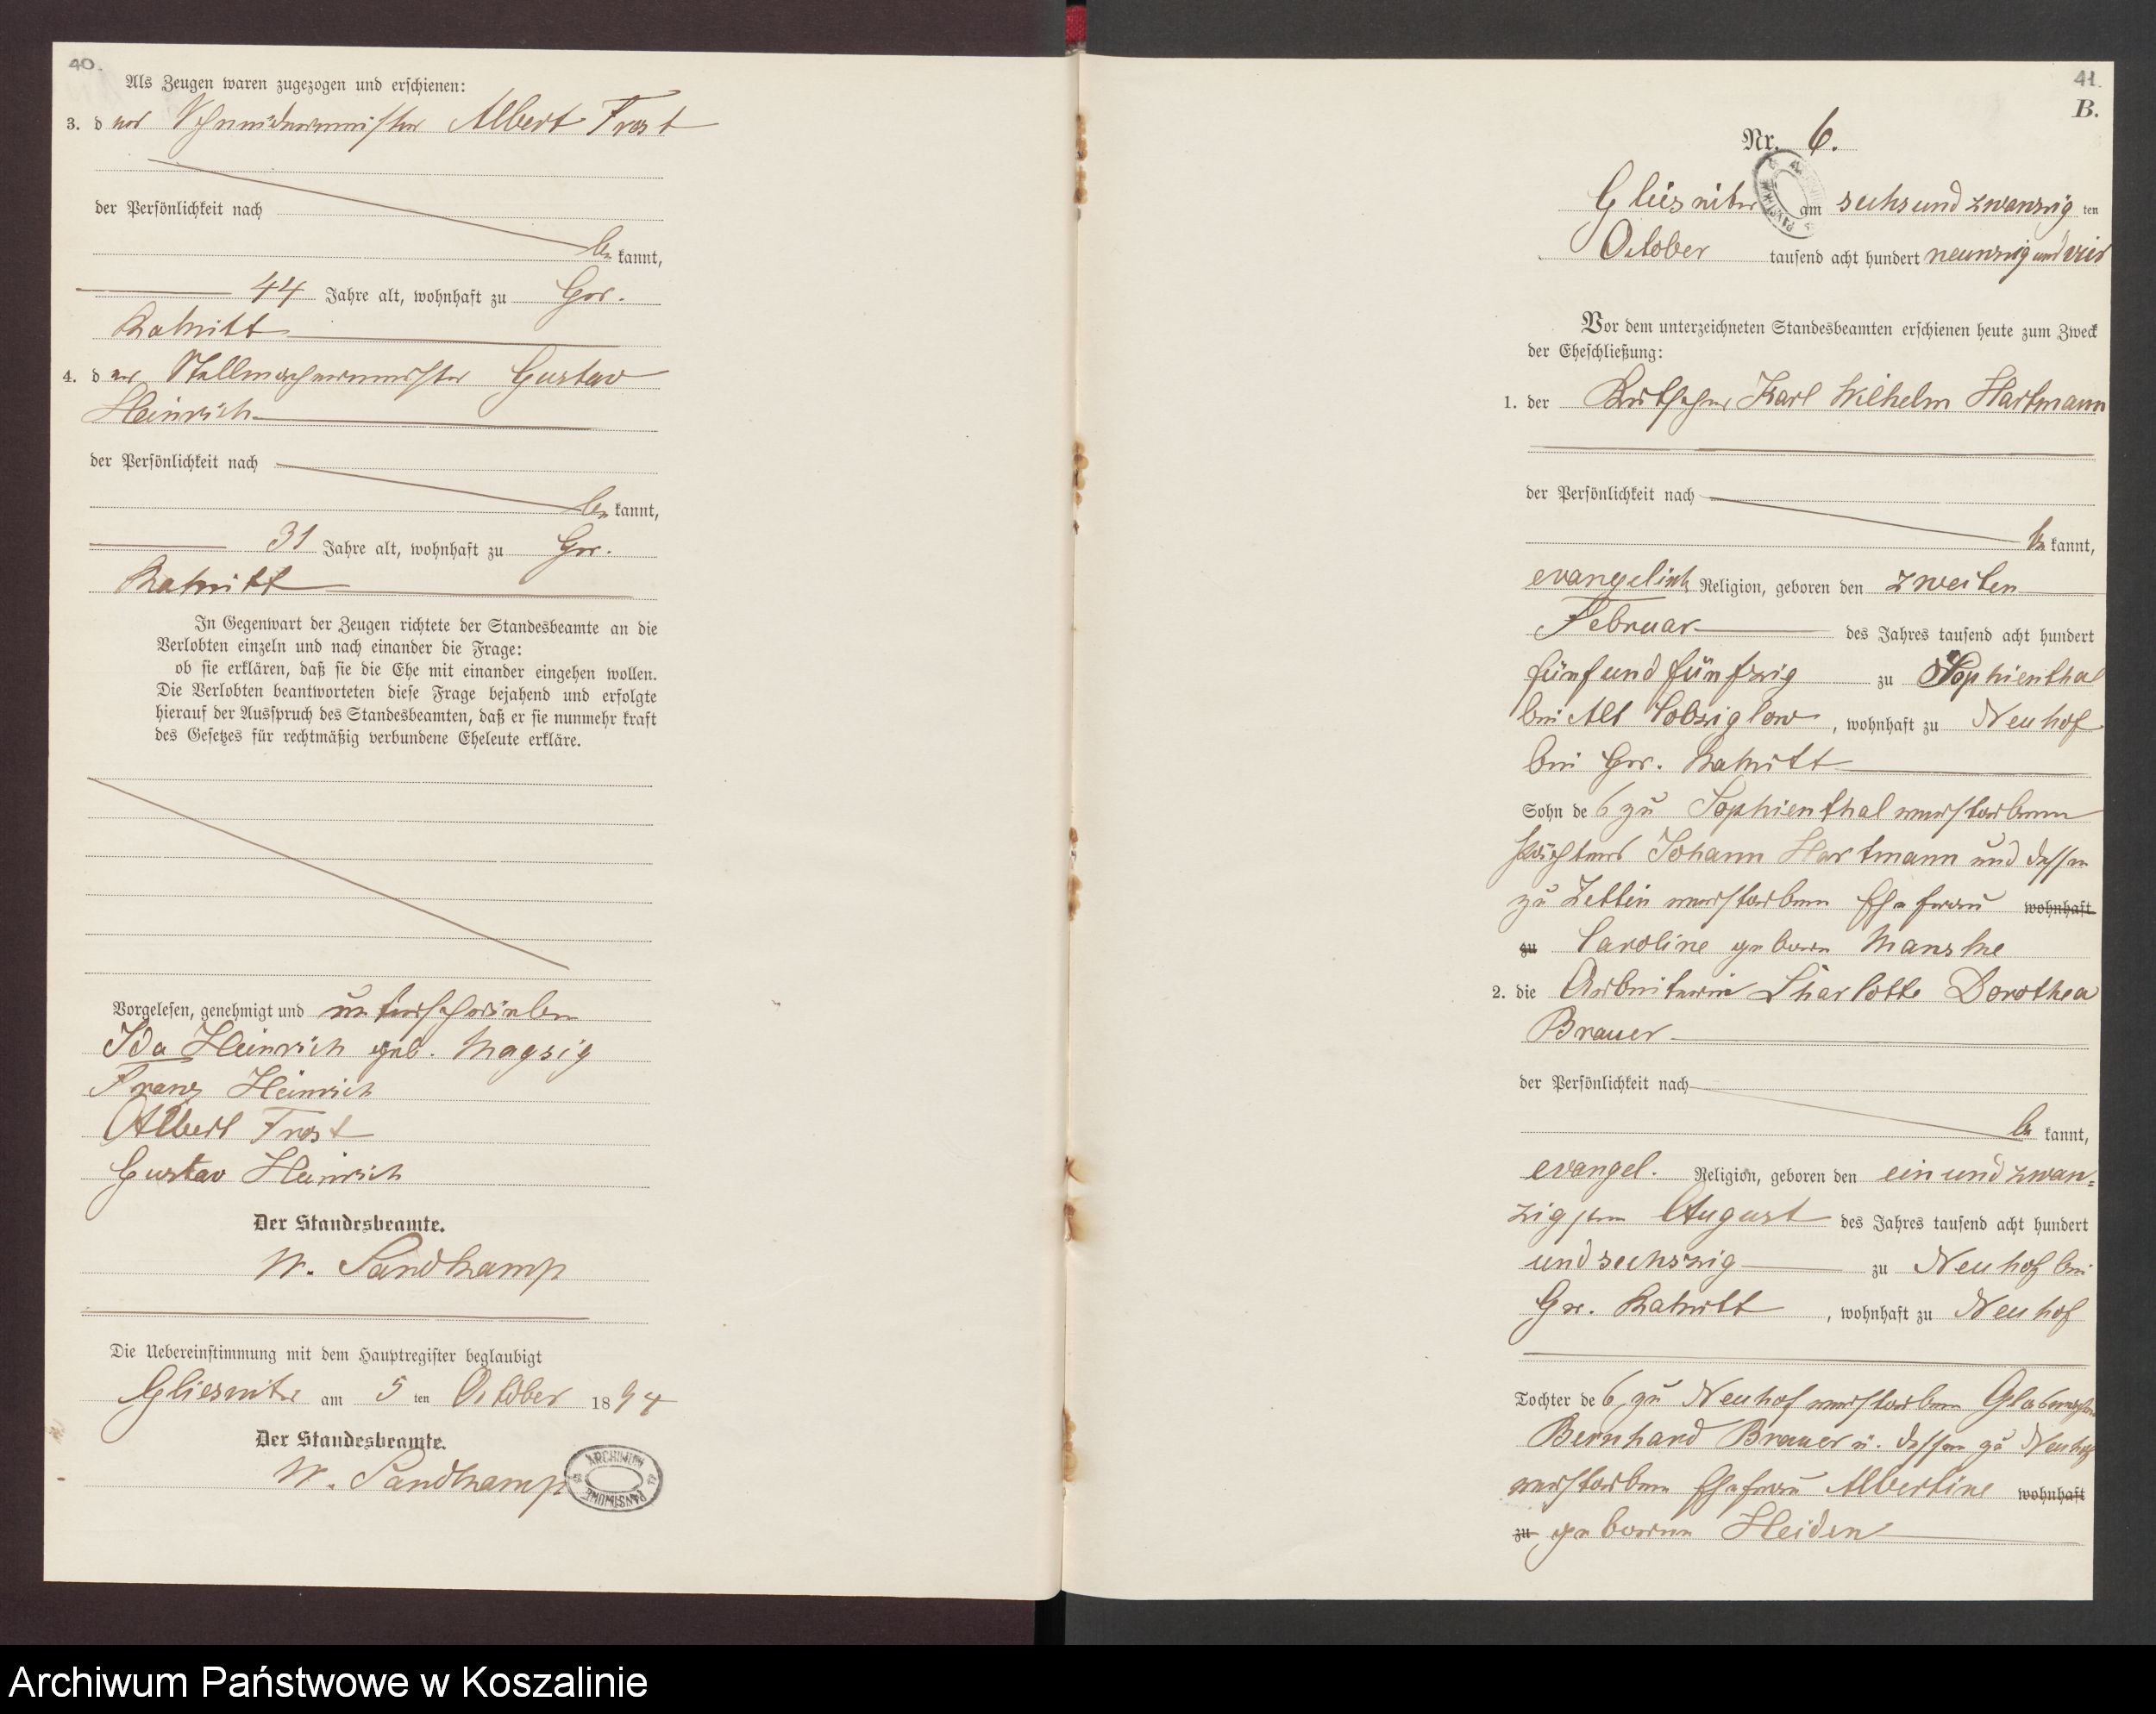 40.
Als Zeugen waren zugezogen und erschienen:
3. der Schneidermeister Albert Frost
der Persönlichkeit nach
be kannt,
44 Jahre alt, wohnhaft zu Gr.
Rakitt
4. der Stellmachermeister Gustav
Heinrich
der Persönlichkeit nach
be kannt,
31 Jahre alt, wohnhaft zu Gr.
Rakitt
In Gegenwart der Zeugen richtete der Standesbeamte an die
Verlobten einzeln und nach einander die Frage:
ob sie erklären, daß sie die Ehe mit einander eingehen wollen.
Die Verlobten beantworteten diese Frage bejahend und erfolgte
hierauf der Ausspruch des Standesbeamten, daß er sie nunmehr kraft
des Gesetzes für rechtmäßig verbundene Eheleute erkläre.
Vorgelesen, genehmigt und unterschrieben
Ida Heinrich geb. Magsig
Franz Heinrich
Albert Frost
Gustav Heinrich
Der Standesbeamte.
W. Sandkamp
Die Uebereinstimmung mit dem Hauptregister beglaubigt
Gliesnitz am 5 ten October 1894
Der Standesbeamte.
W. Sandkamp
ARCHIWUM PAŃSTWOWE
41.
B.
Nr. 6.
Gliesnitz am sechsundzwanzig ten
October tausend acht hundert neunzig und vier
Vor dem unterzeichneten Standesbeamten erschienen heute zum Zweck
der Eheschließung:
1. der Kutscher Karl Wilhelm Hartmann
der Persönlichkeit nach
be kannt,
evangelisch Religion, geboren den zweiten
Februar des Jahres tausend acht hundert
fünf und fünfzig zu Sophienthal
bei Alt Kolziglow, wohnhaft zu Neuhof
bei Gr. Rakitt
Sohn des zu Sophienthal verstorbenen
Pächters Johann Hartmann und dessen
zu Zettin verstorbenen Ehefrau wohnhaft
zu Caroline geboren Manske
2. die Arbeiterin Charlotte Dorothea
Brauer
der Persönlichkeit nach
be kannt,
evangel. Religion, geboren den ein und zwan=
zigsten August des Jahres tausend acht hundert
und sechszig zu Neuhof bei
Gr. Rakitt, wohnhaft zu Neuhof
Tochter des zu Neuhof verstorbenen
Bernhard Brauer u. dessen zu Neuhof
verstorbenen Ehefrau Albertine wohnhaft
zu geborenen Heiden
Archiwum Państwowe w Koszalinie